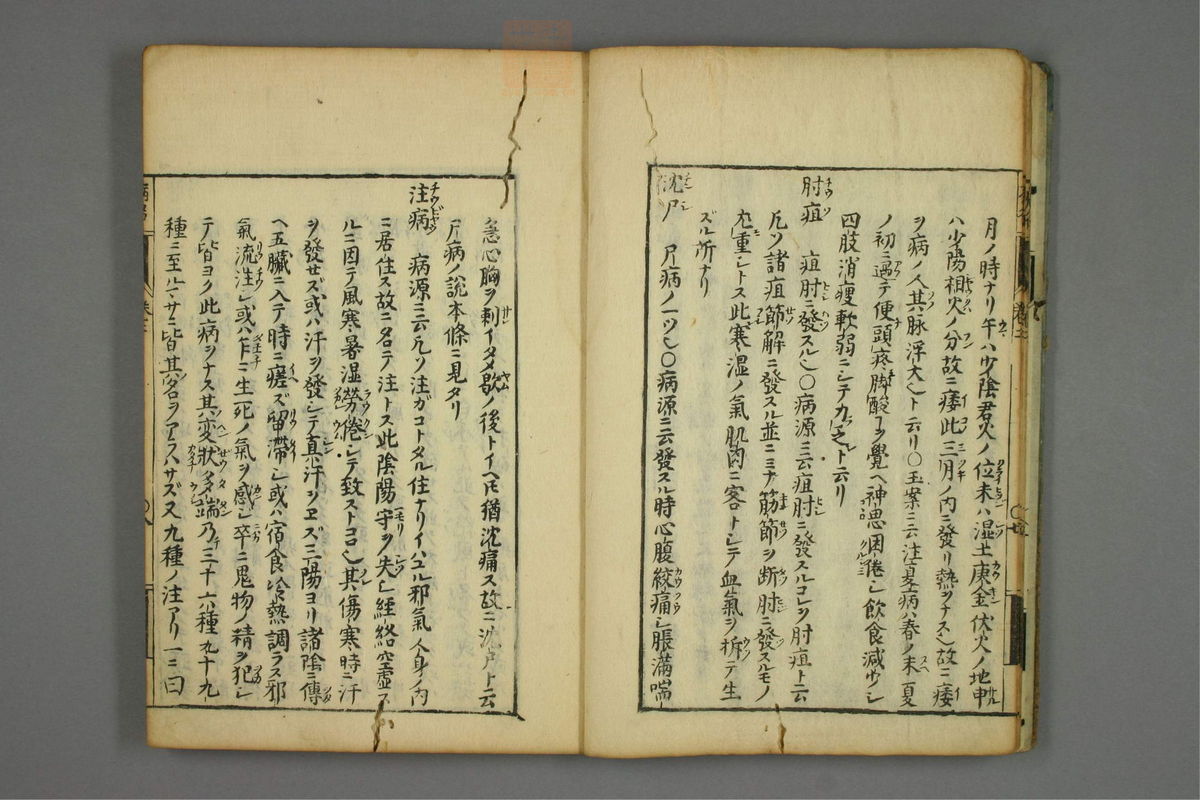 月ノ時ナリ午ハ少陰君火ノ位未ハ湿土庚金伏火ノ地申
ハ少陽相火ノ分故ニ痿此三月ノ内ニ發リ熱ヲナス也故ニ痿
ヲ病ノ人其脉浮大也ト云リ○玉案ニ云注夏病ハ春ノ末夏
ノ初ニ遇テ便頭疼脚酸ヿヲ覺ヘ神思困倦シ飲食減少シ
四肢消痩軟弱ニシテ力乏ト云リ
肘疽 疽肘ニ發スル也○病源ニ云疽肘ニ發スルコレヲ肘疽ト云
凡ソ諸疽節解ニ發スル並ニミナ筋節ヲ断肘ニ發スルモノ
尤重シトス此寒湿ノ氣肌肉ニ客トシテ血氣ヲ折テ生
ズル所ナリ
沈尸 尸病ノ一ツ也○病源ニ云發スル時心腹絞痛シ脹滿喘
急心胸ヲ刺イタメ歇ノ後トイヘ𪜈猶沈痛ス故ニ沈尸ト云
尸病ノ説本條ニ見タリ
注病 病源ニ云凡ソ注ガコトタル住ナリイハユル邪氣人身ノ内
ニ居住ス故ニ名テ注トス此陰陽守ヲ失シ經絡空虚ス
ルニ因テ風寒暑湿勞倦シテ致ストコロ也其傷寒時ニ汗
ヲ發せズ或ハ汗ヲ發シテ真汗ヲヱズ三陽ヨリ諸陰ニ傳
ヘ五臟ニ入テ時ニ瘥ズ留滯シ或ハ宿食冷熱調ラス邪
氣流注シ或ハ乍ニ生死ノ氣ヲ感シ卒ニ鬼物ノ精ヲ犯シ
テ皆ヨク此病ヲナス其変狀多端乃三十六種九十九
種ニ至ルマサニ皆其名ヲアラハサズ又九種ノ注アリ一ニ曰